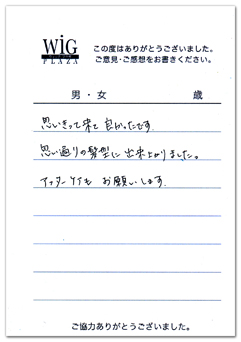 WiG
PLAZA
この度はありがとうございました。
ご意見・ご感想をお書きください。
男・女 歳
思いきって来て良かったです。
思い通りの髪型に出来上がりました。
アフターケアもお願いします。
ご協力ありがとうございました。